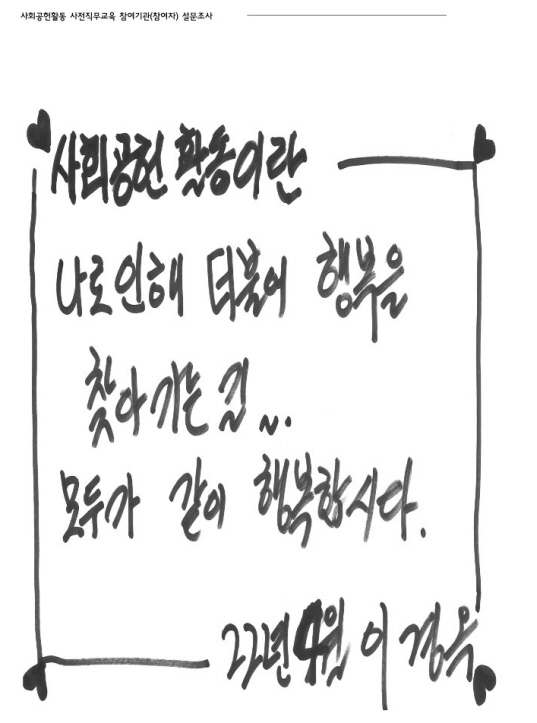 사회공헌활동 사전직무교육 참여기관(참여자) 설문조사
사회공헌 활동이란
나로인해 더불어 행복을
찾아가는길 ~..
모두가 같이 행복합시다.
22년 4월 이경옥